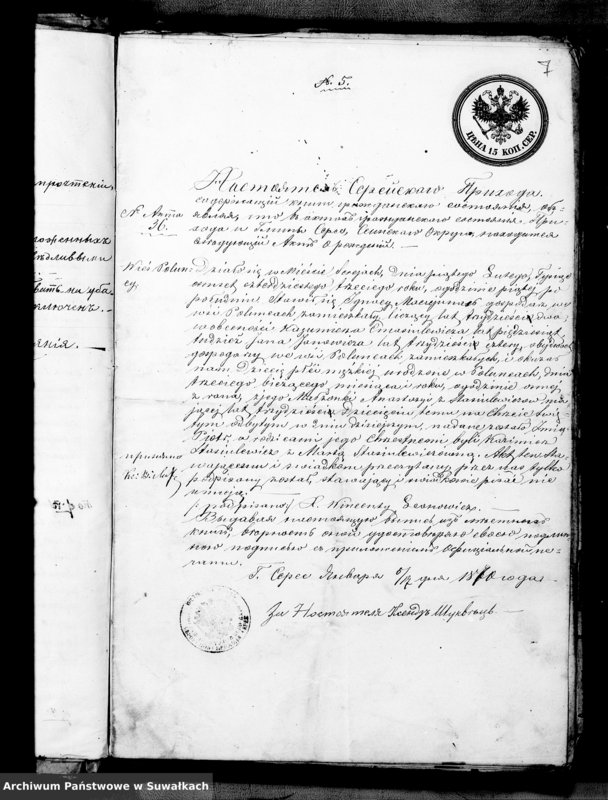 7
№ 5.
ЦѢНА 15 КОП. СЕР.
Настоятель Серейскаго Прихода
содержащій книги гражданскаго состоянія, объ-
являя, что въ книгѣ гражданскаго состоянія, При-
№ Акта
36.
хода и Гмины Серее, Сейнскаго Округа, находится
слѣдующій Актъ о рожденіи. —
Wieś Polun-
cy.
Działo się w Mieście Serejach, dnia piątego Lutego, Tysiąc
ośmset czterdziestego trzeciego roku, o godzinie piątej po
południu. Stawił się Ignacy gospodarz we
wsi Poluncach zamieszkały, liczący lat trzydzieści dwa,
w obecności Kazimierza lat pięćdziesiąt
tudzież Jana Janowicza lat trzydzieści cztery, obydwóch
gospodarzy we wsi Poluncach zamieszkałych, i okazał
nam Dziecię płci męzkiej urodzone w Poluncach, dnia
trzeciego bieżącego miesiąca i roku, o godzinie ósmej
z rana, z jego Małżonki Anastazyi z Stanilewiczów ma-
jącej lat trzydzieści. Dziecięciu temu na Chrzcie świę-
tym odbytym w dniu dzisiejszym, nadane zostało Imię
Piotr, a rodzicami jego Chrzestnemi byli Kazimierz
Stanilewicz z Martą Stanilewiczową. Akt ten sta-
wającemu i świadkom przeczytany, przez Nas tylko
podpisany został, stawający i świadkowie pisać nie
umieją. —
/podpisano/ X. Wincenty Leonowicz. —
Выдавая настоящую выпись изъ метричныхъ
книгъ, вѣрность оной удостовѣряю своею подлин-
ною подписью съ приложеніемъ оффиціальной пе-
чати.
Г. Серее Января дня 1870 года. —
За Настоятеля Ксендзъ —
Archiwum Państwowe w Suwałkach